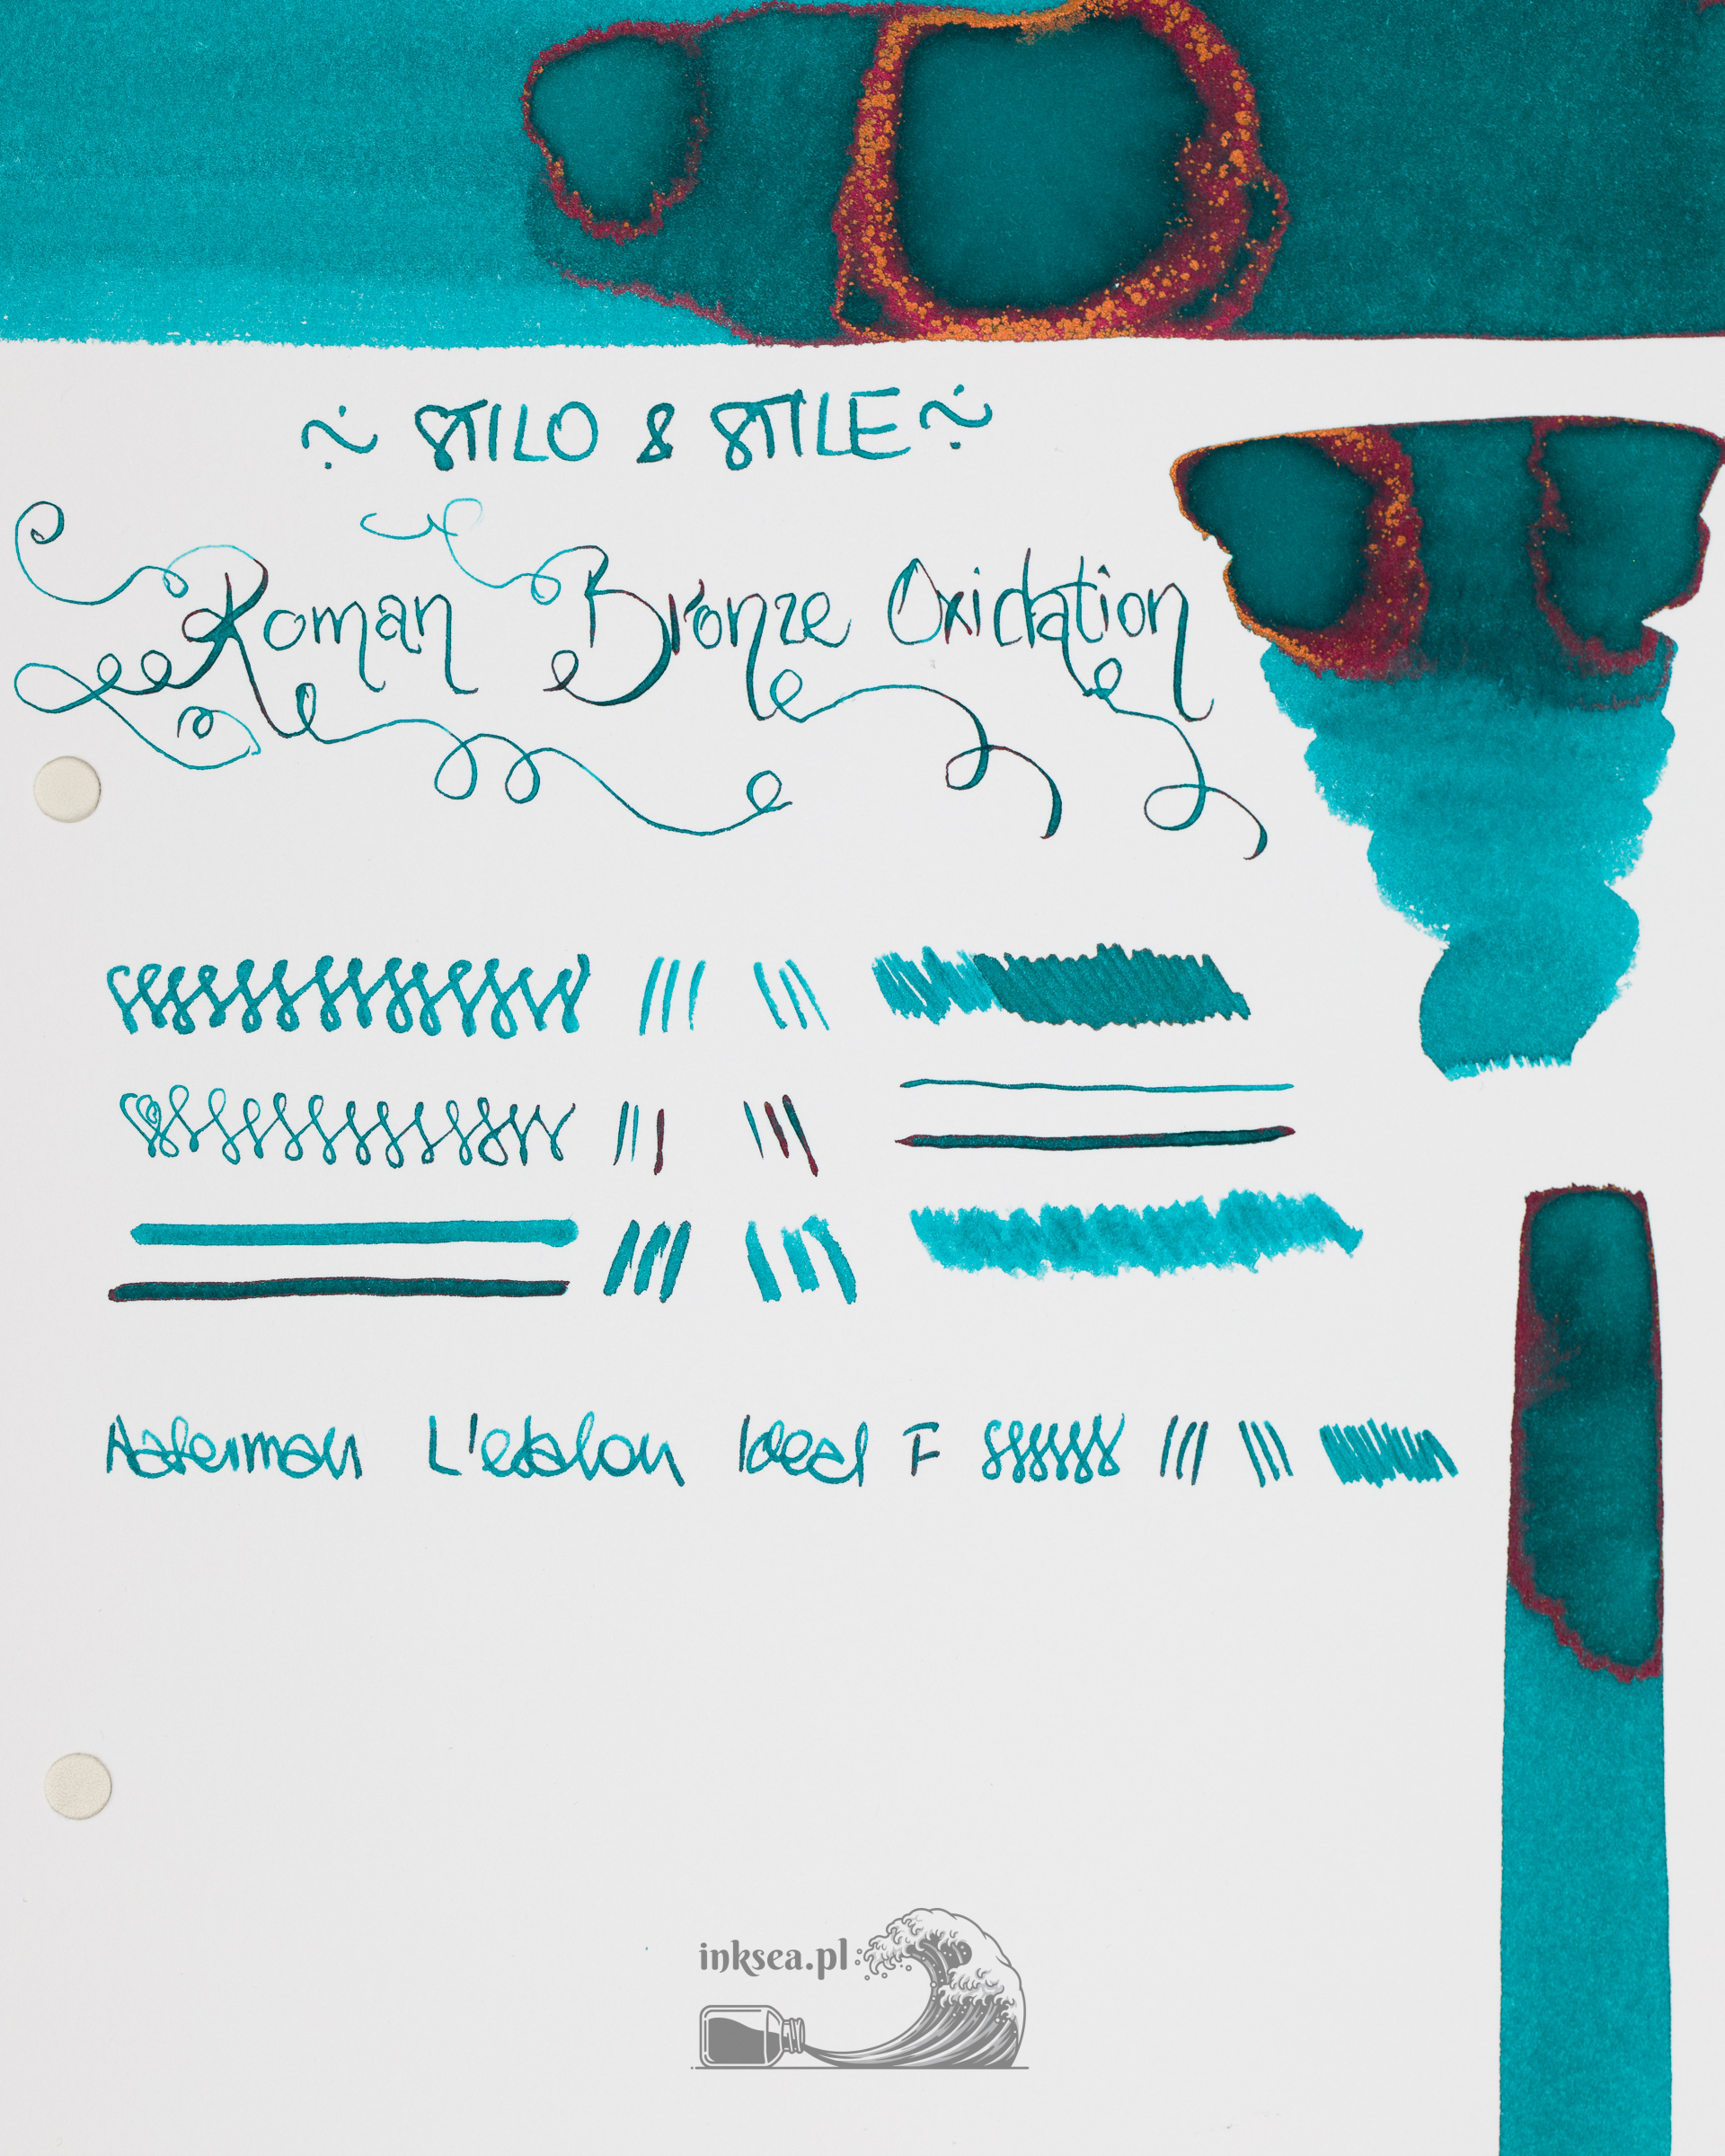 ~ STILO & STILE ~
Roman Bronze Oxidation
Aakerman L'etalon Ideal F
inksea.pl